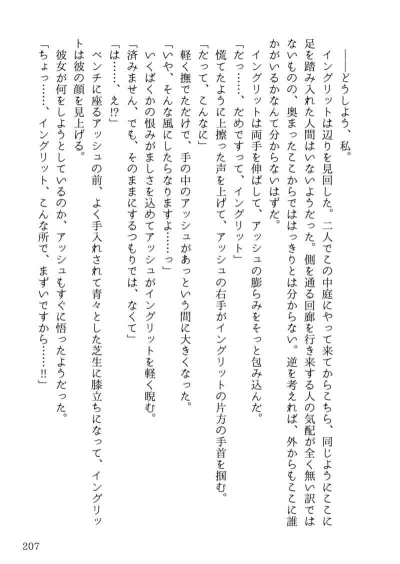 ――どうしよう、私。
イングリットは辺りを見回した。二人でこの中庭にやって来てからこちら、同じようにここに
足を踏み入れた人間はいないようだった。側を通る回廊を行き来する人の気配が全く無い訳では
ないものの、奥まったここからでははっきりとは分からない。逆を考えれば、外からもここに誰
かがいるかなんて分からないはずだ。
イングリットは両手を伸ばして、アッシュの膨らみをそっと包み込んだ。
「だっ……、だめですって、イングリット」
慌てたように上擦った声を上げて、アッシュの右手がイングリットの片方の手首を掴む。
「だって、こんなに」
軽く撫でただけで、手の中のアッシュがあっという間に大きくなった。
「いや、そんな風にしたらなりますよ……っ」
いくばくかの恨みがましさを込めてアッシュがイングリットを軽く睨む。
「済みません、でも、そのままにするつもりでは、なくて」
「は……、え!?」
ベンチに座るアッシュの前、よく手入れされて青々とした芝生に膝立ちになって、イングリッ
トは彼の顔を見上げる。
彼女が何をしようとしているのか、アッシュもすぐに悟ったようだった。
「ちょっ……、イングリット、こんな所で、まずいですから……!!」
207